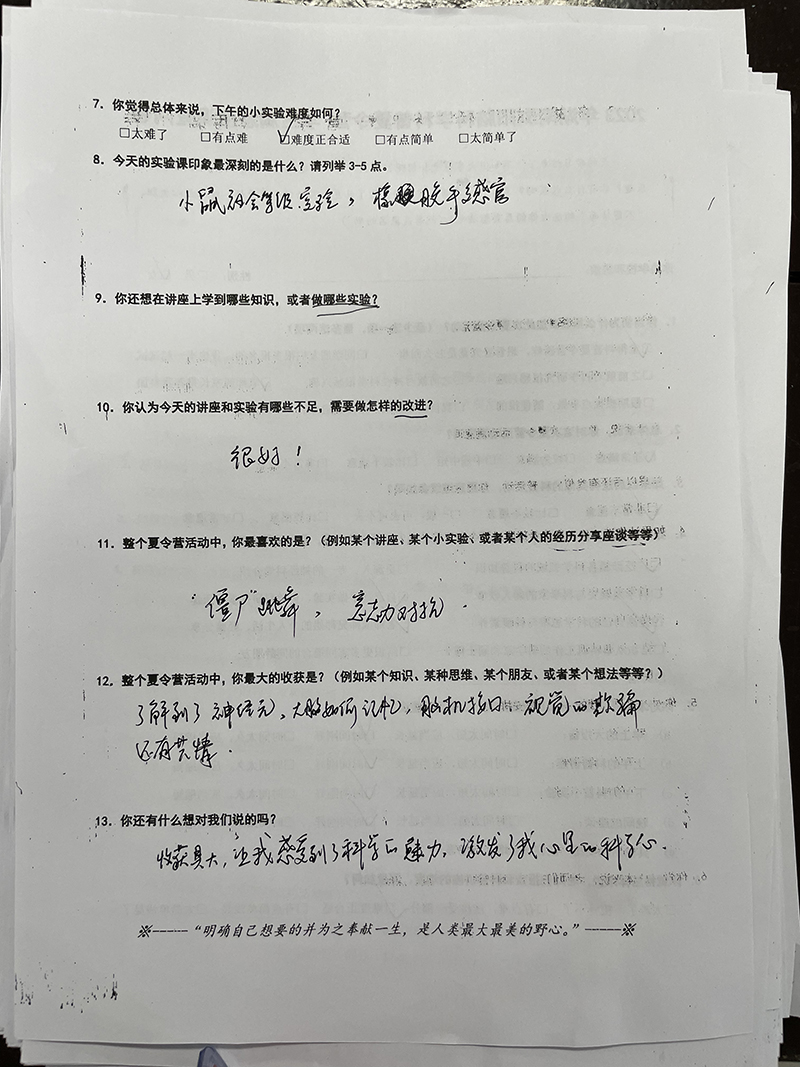 7. 你觉得总体来说，下午的小实验难度如何？
□太难了 □有点难 ☑难度正合适 □有点简单 □太简单了
8. 今天的实验课印象最深刻的是什么？请列举3-5点。
小鼠社会等级实验，橡胶手感官
9. 你还想在讲座上学到哪些知识，或者做哪些实验？
10. 你认为今天的讲座和实验有哪些不足，需要做怎样的改进？
很好！
11. 整个夏令营活动中，你最喜欢的是？（例如某个讲座、某个小实验、或者某个人的经历分享座谈等等）
“僵尸”跳舞，意志力对抗.
12. 整个夏令营活动中，你最大的收获是？（例如某个知识、某种思维、某个朋友、或者某个想法等等？）
了解到了神经元、大脑如何记忆，脑机接口、视觉的欺骗
还有共情.
13. 你还有什么想对我们说的吗？
收获具大，让我感受到了科学的魅力，激发了我心里的科学心.
※-----“明确自己想要的并为之奉献一生，是人类最大最美的野心。”-----※